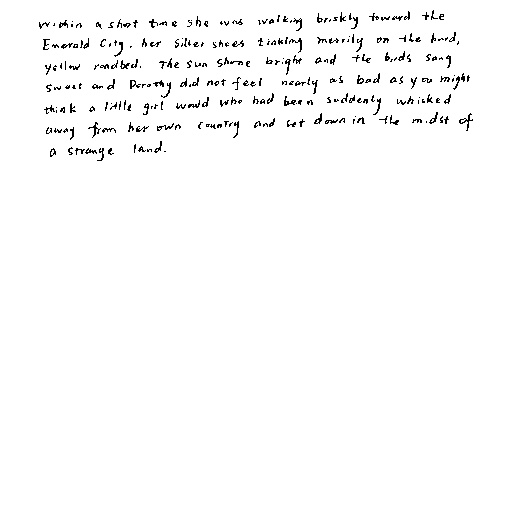 Within a short time she was walking briskly toward the
Emerald City, her silver shoes tinkling merrily on the hard,
yellow roadbed. The sun shone bright and the birds sang
sweet and Dorothy did not feel nearly as bad as you might
think a little girl would who had been suddenly whisked
away from her own country and set down in the midst of
a strange land.